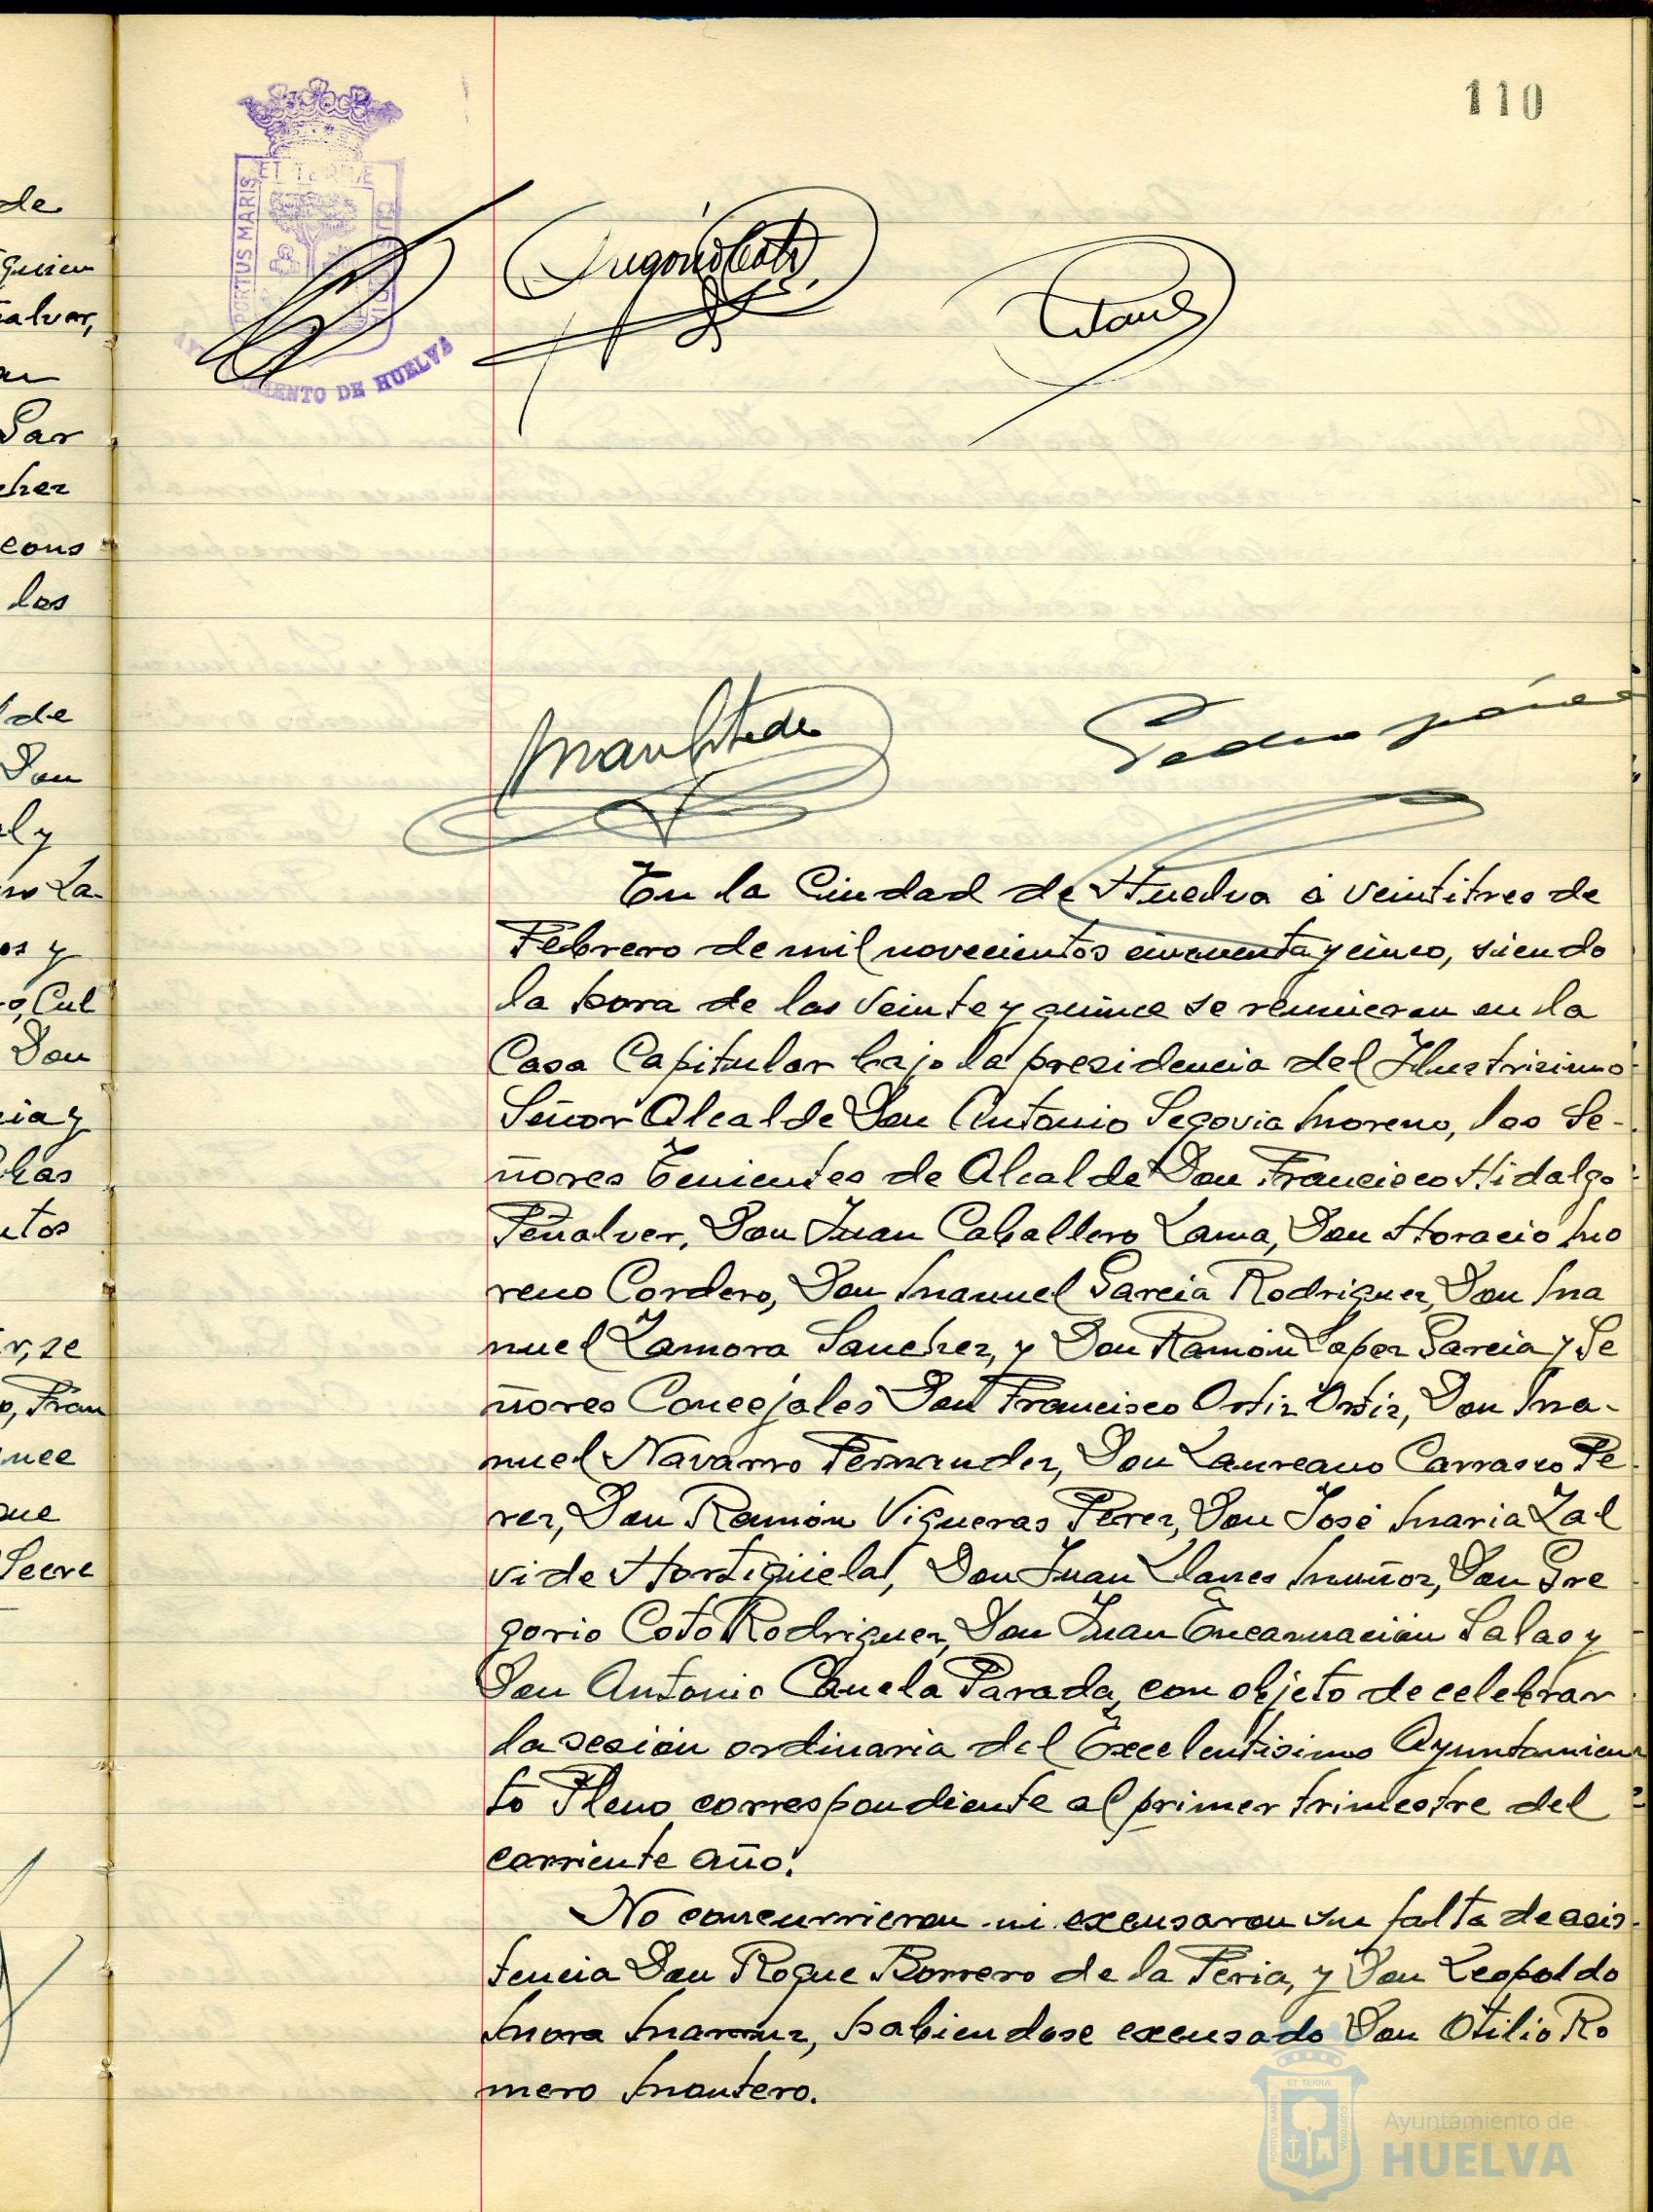 110
ET TERRE
PORTUS MARIS
CUSTODIA
AYUNTAMIENTO DE HUELVA
de
quien
ñalver,
Gar
chez
cons
los
de
Don
l y
La-
os y
Cul
Don
ia y
ntos
r, se
Fran
que
Secre
En la Ciudad de Huelva á veintitres de
Febrero de mil novecientos cincuenta y cinco, siendo
la hora de las veinte y quince se reunieron en la
Casa Capitular bajo la presidencia del Ilustrisimo
Señor Alcalde Don Antonio Segovia Moreno, los Se-
ñores Tenientes de Alcalde Don Francisco Hidalgo
Peñalver, Don Juan Caballero Lama, Don Horacio Mo
reno Cordero, Don Manuel Garcia Rodriguez, Don Ma
nuel Zamora Sanchez, y Don Ramón Lopez Garcia y Se
ñores Concejales Don Francisco Ortiz Ortiz, Don Ma-
nuel Navarro Fernandez, Don Laureano Carrasco Pe
rez, Don Ramón Vigueras Perez, Don José Maria Zal
vide Hortigüela, Don Juan Llanes Muñoz, Don Gre
gorio Coto Rodriguez, Don Juan Encarnación Salas y
Don Antonio Canela Parada, con objeto de celebrar
la sesión ordinaria del Excelentisimo Ayuntamien
to Pleno correspondiente al primer trimestre del
corriente año.
No concurrieron ni excusaron su falta de asis-
tencia Don Roque Borrero de la Feria, y Don Leopoldo
Mora Marmz, habiendose excusado Don Otilio Ro
mero Montero.
Ayuntamiento de
HUELVA